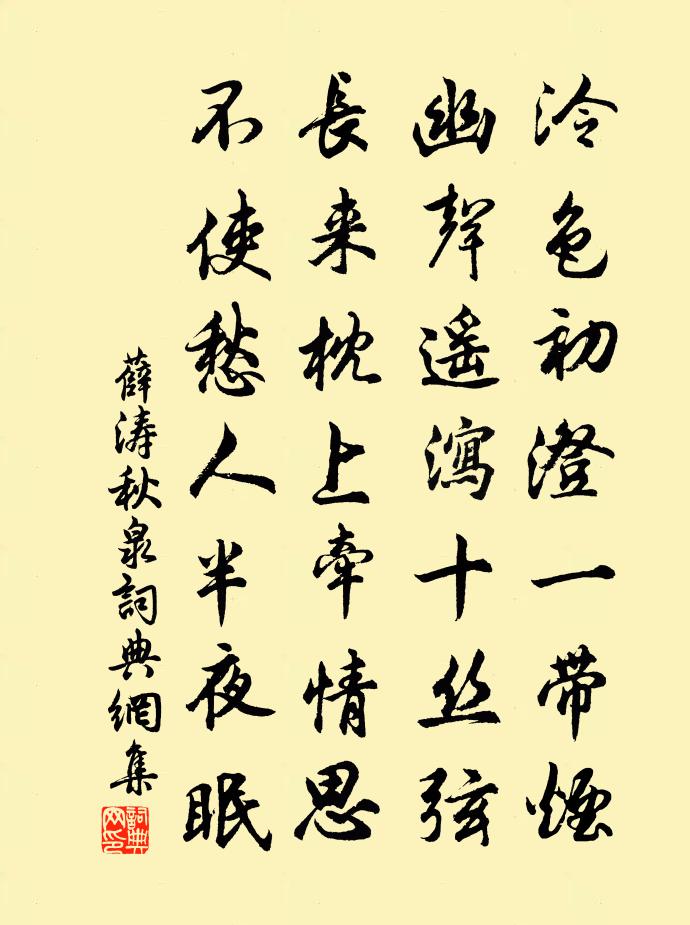 泠色初澄一带煙
幽聲遥瀉十丝弦
長来枕上牽情思
不使愁人半夜眠
薛涛秋泉詞典網集
詞典网印